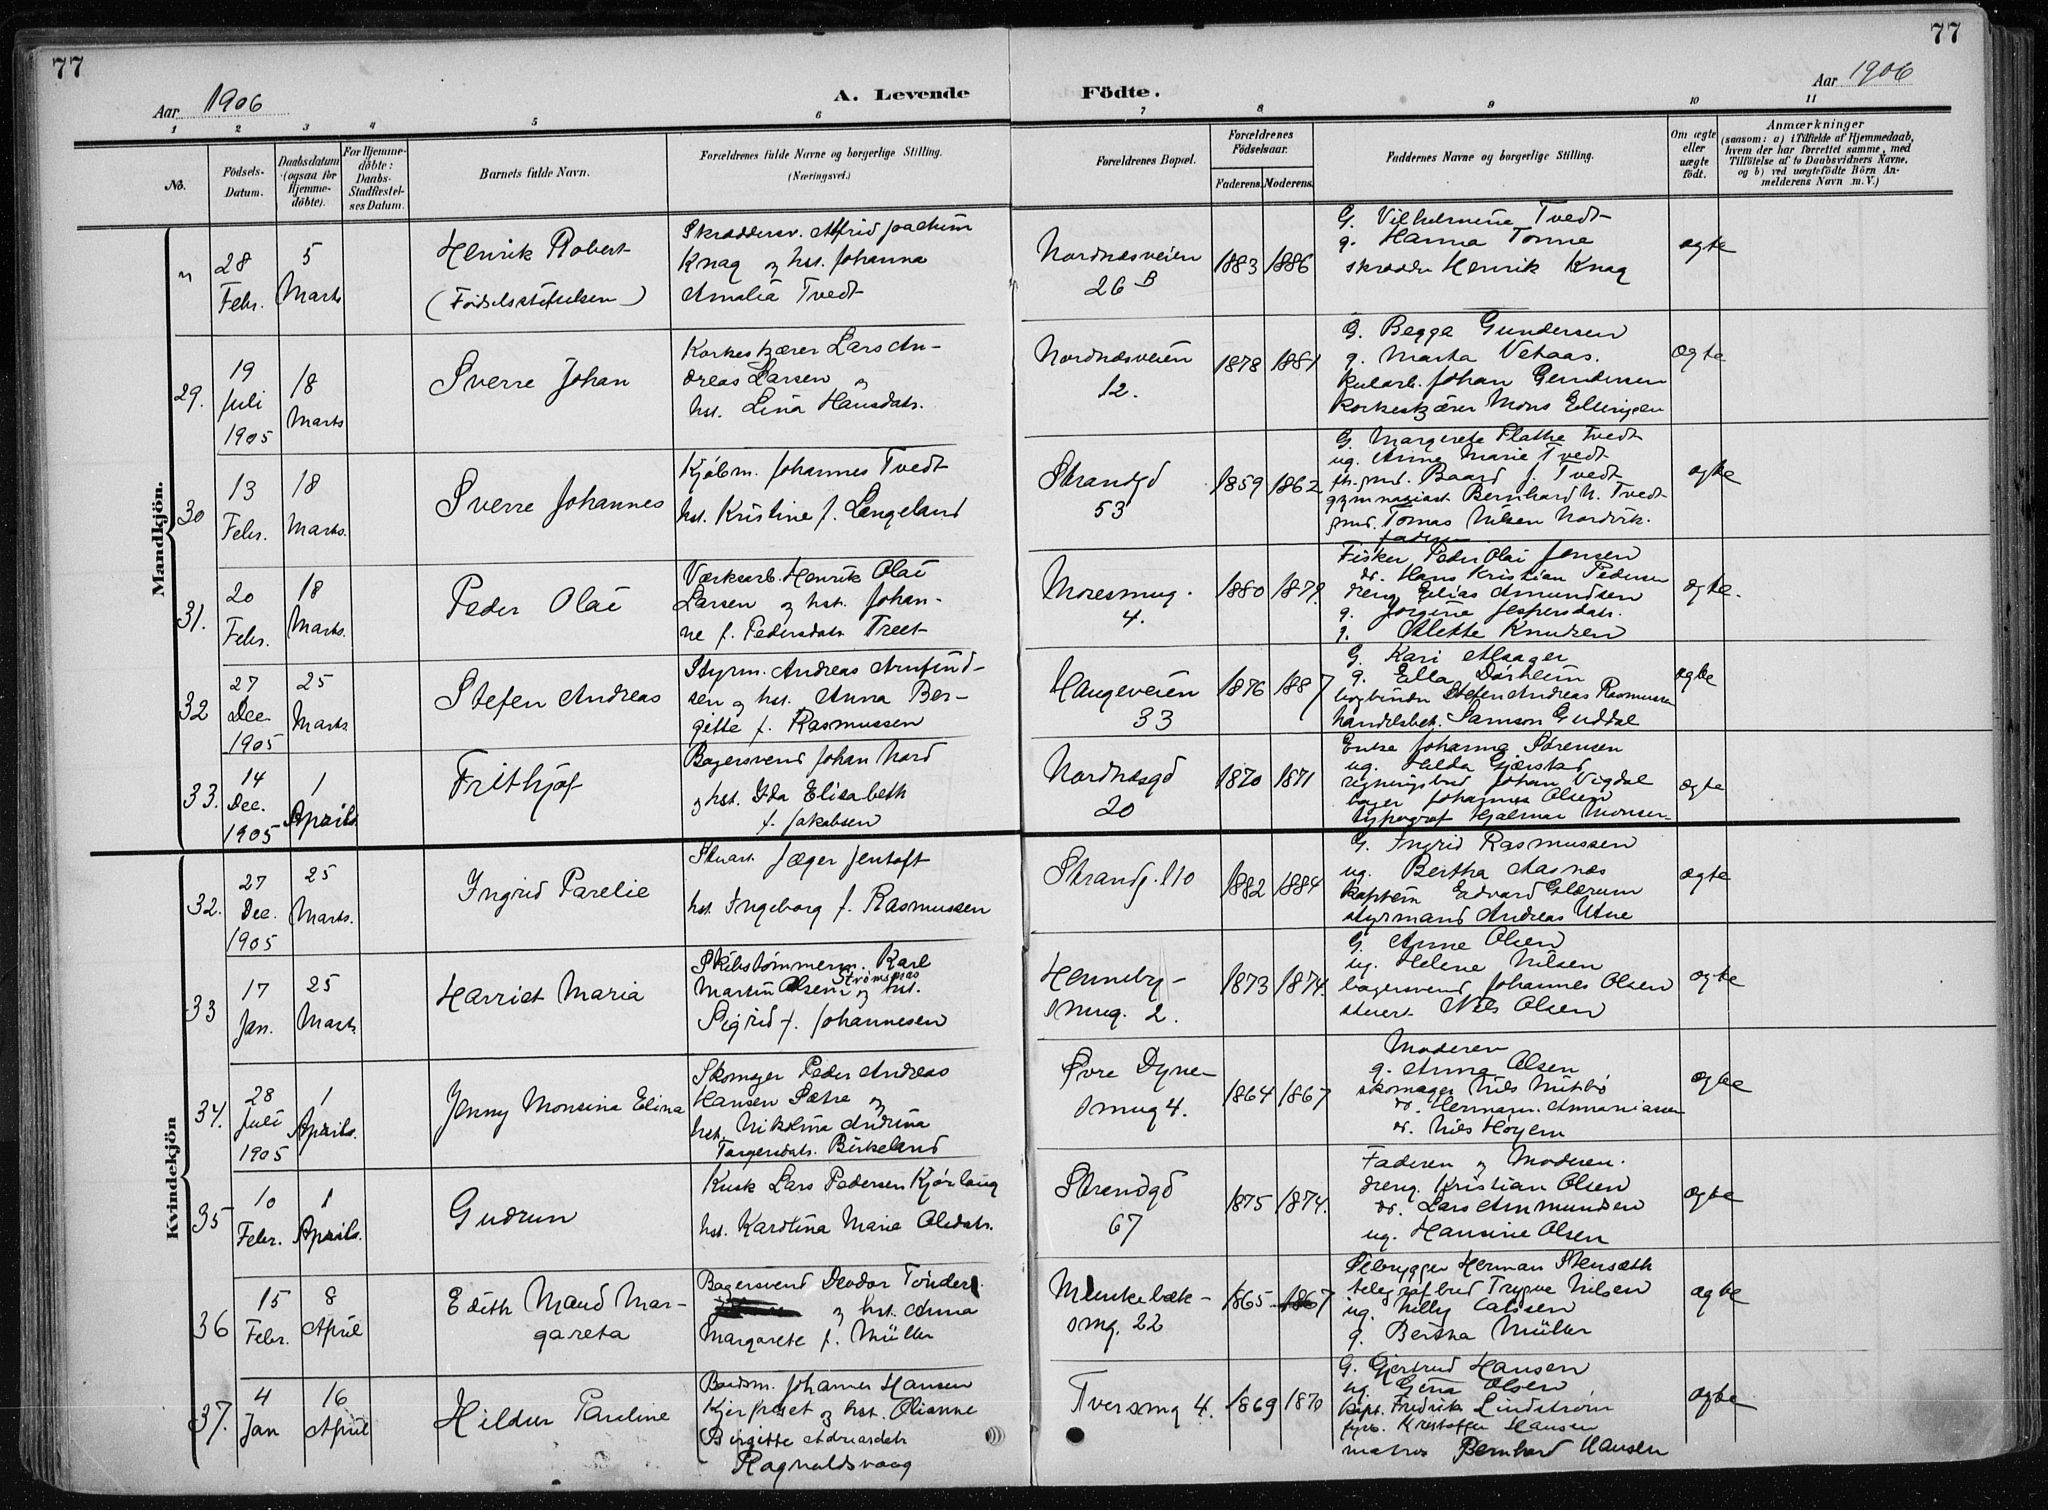 77
77
Aar 1906
A. Levende
Födte.
Aar 1906
1 2 3 4 5 6 7 8 9 10 11
No.
Födsels-
Datum.
Daabsdatum
(ogsaa for
Hjemme-
döbte).
For Hjemme-
döbte:
Daabs-
Stadfæstel-
ses Datum.
Barnets fulde Navn.
Forældrenes fulde Navne og borgerlige Stilling.
(Næringsvei.)
Forældrenes Bopæl.
Forældrenes
Födselsaar.
Faderens. Moderens.
Faddernes Navne og borgerlige Stilling.
Om ægte
eller
uægte
födt.
Anmærkninger
(saasom: a) i Tilfælde af Hjemmedaab,
hvem der har forrettet samme, med
Tilföielse af to Daabsvidners Navne,
og b) ved uægtefödte Börn An-
melderens Navn m. V.)
Mandkjön.
28
Febr.
5
Marts
Henrik Robert
(Fødselsstiftelsen)
Skræddersv. Alfrid Joachim
Knag og hst. Johanna
Amalia Tvedt
Nordnæsveien
26 B
1883 1886
G. Vilhelmine Tvedt
g. Hanna Tonne
skrædder Henrik Knag
ægte
29.
19
Juli
1905
18
Marts
Sverre Johan
Korkeskjærer Lars An-
dreas Larsen og
hst. Lina Hansdatr.
Nordnæsveien
12.
1878 1881
G. Begga Gundersen
g. Marta Vetaas.
kularb. Johan Gundersen
korkeskjærer Mons Ellingsen
ægte
30
13
Febr.
18
Marts.
Sverre Johannes
Kjøbm. Johannes Tvedt
hst. Kristine f. Lengeland
Strandgd
53
1859 1862
G. Margrete Plathe Tvedt
ug. Anne Marie Tvedt
fh. gmd. Baard J. Tvedt
gymnasiast Bernhard N. Tvedt
gmd. Tomas Nilsen Nordvik.
faderen
ægte
31.
20
Febr.
18
Marts.
Peder Olai
Værksarb. Henrik Olai
Larsen og hst. Johan-
ne f. Pedersdatr. Treet
Moresmug.
4.
1880 1879.
Fisker Peder Olai Jensen
do. Hans Kristian Pedersen
dreng Elias Amundsen
g. Jorgine Jespersdatr.
g. Alette Knudsen
ægte.
32
27
Dec.
1905
25
Marts.
Stefen Andreas
Styrm. Andreas Amfind-
sen og hst. Anna Ber-
gitte f. Rasmussen
Haugeveien
33
1876 1887
G. Kari Alsager
g. Ella Dørheim
bogbinder Stefen Andreas Rasmussen
handelsbet. Samson Guddal
ægte
33.
14
Dec.
1905
1
Aprils.
Frithjof
Bagersvend Johan Nord
og hst. Ida Elisabeth
f. Jakobsen
Nordnæsgd
20
1870 1871
Enke Johanna Sørensen
ug. Hilda Gjerstad
regningsbud Johan Vigdal
bager Johannes Olsen
typograf Hjalmar Monsen
ægte
Kvindekjön
32.
27
Dec.
1905
25
Marts.
Ingrid Parelie
Stuart Jæger Jentoft
hst. Ingeborg f. Rasmussen
Strandg. 110
1882 1884
G. Ingrid Rasmussen
ug. Bertha Aasnæs
kaptein Edvard Glærum
styrmand Andreas Utne
ægte
33
17
Jan.
25
Marts.
Harriet Maria
Skibstømmerm. Karl
Martin Olsen Strømsnæs og hst.
Sigrid f. Johannesen
Henneby-
smug. 2.
1873 1874.
G. Anne Olsen
ug. Helene Nilsen
bagersvend Johannes Olsen
stuert Nils Olsen
ægte
34.
28
Juli
1905
1
Aprils.
Jenny Monsina Elina
Skomager Peder Andreas
Hansen Sætre og
hst. Nikolina Andrina
Torgersdatr. Birkeland
Øvre Dyne-
smug 4.
1864 1867
Moderen
g. Anna Olsen
skomager Nils Midtbø
do. Hermann Annaniassen
do. Nils Høyem
ægte
35
10
Febr.
1
Aprils.
Gudrun
Kusk Lars Pedersen Kjørlaug
hst. Karolina Marie Olsdatr.
Strandgd
67
1875 1874.
Faderen og Moderen.
dreng Kristian Olsen
do. Lars Ammundsen
ug. Hansine Olsen
ægte
36
15
Febr.
8
April
Edith Maud Mar-
gareta
Bagersvend Deodor Tønder
og hst. Anna
Margarete f. Müller
Munkebæk-
smg. 22
1865 1867
Ølbrygger Herman Stensæth
telegrafbud Trygve Nilsen
ug. Nelly Carlsen
g. Bertha Müller
ægte
37.
4
Jan
16
April
Hildur Pauline
Baadsm. Johannes Hansen
Kjerpeset og hst. Olianne
Birgitte Adriandatr
Ragnaldsvaag
Tversmg 4.
1869 1870
G. Gjertrud Hansen
ug. Gina Olsen
kapt. Fredrik Lindstrøm
fyrb. Kristoffer Hansen
matros Bernhard Hansen
ægte